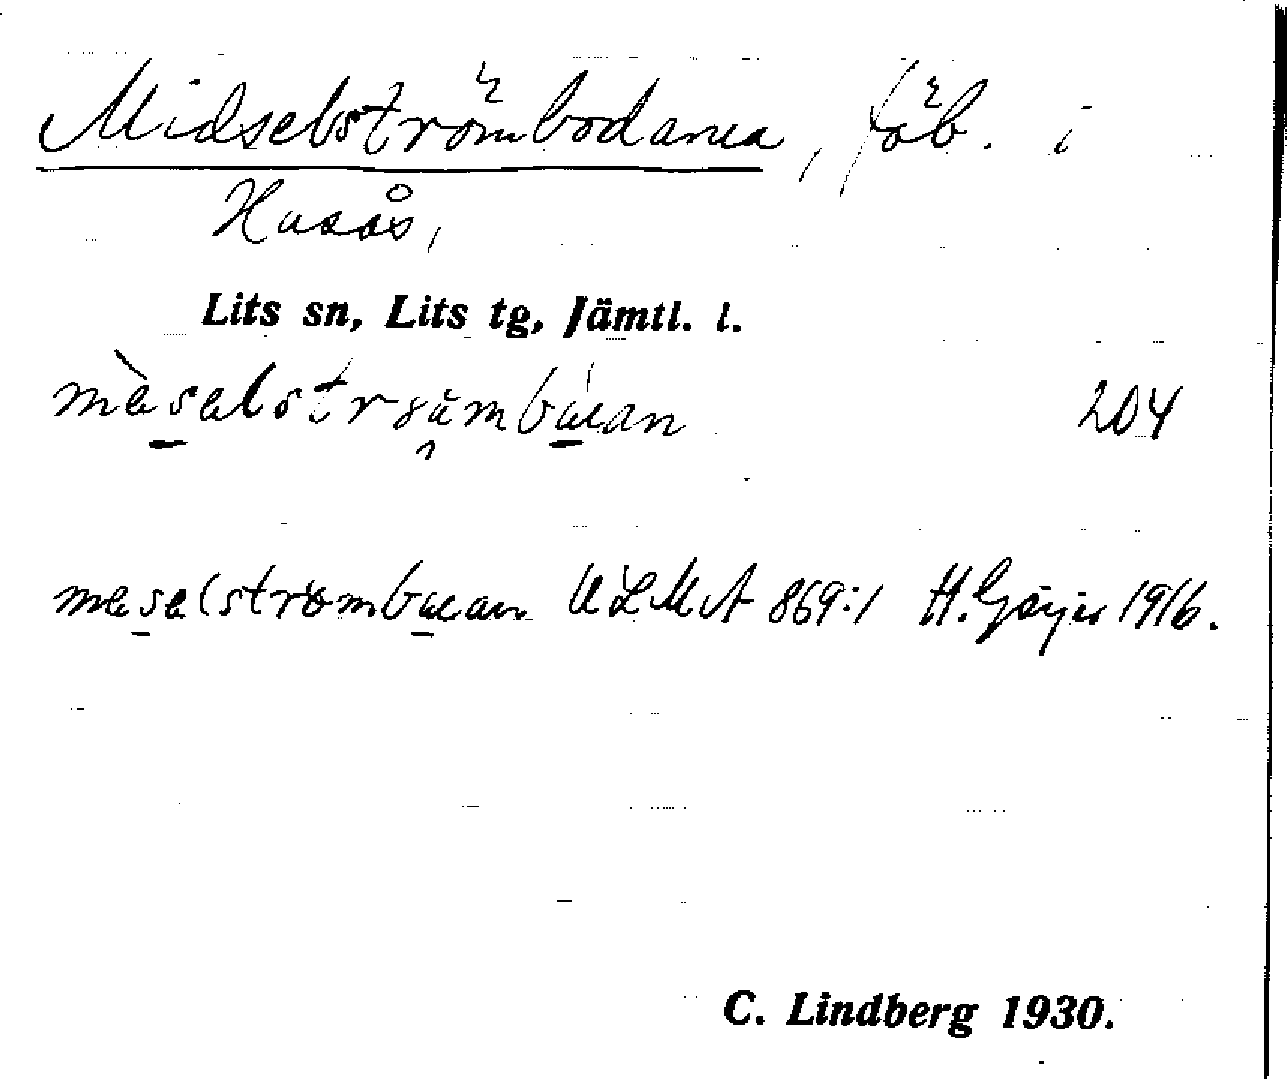 Midselströmbodarna, fäb. i
Husås,
Lits sn, Lits tg, Jämtl. l.
204
ULMA 869:1 H. Geijer 1916.
C. Lindberg 1930.